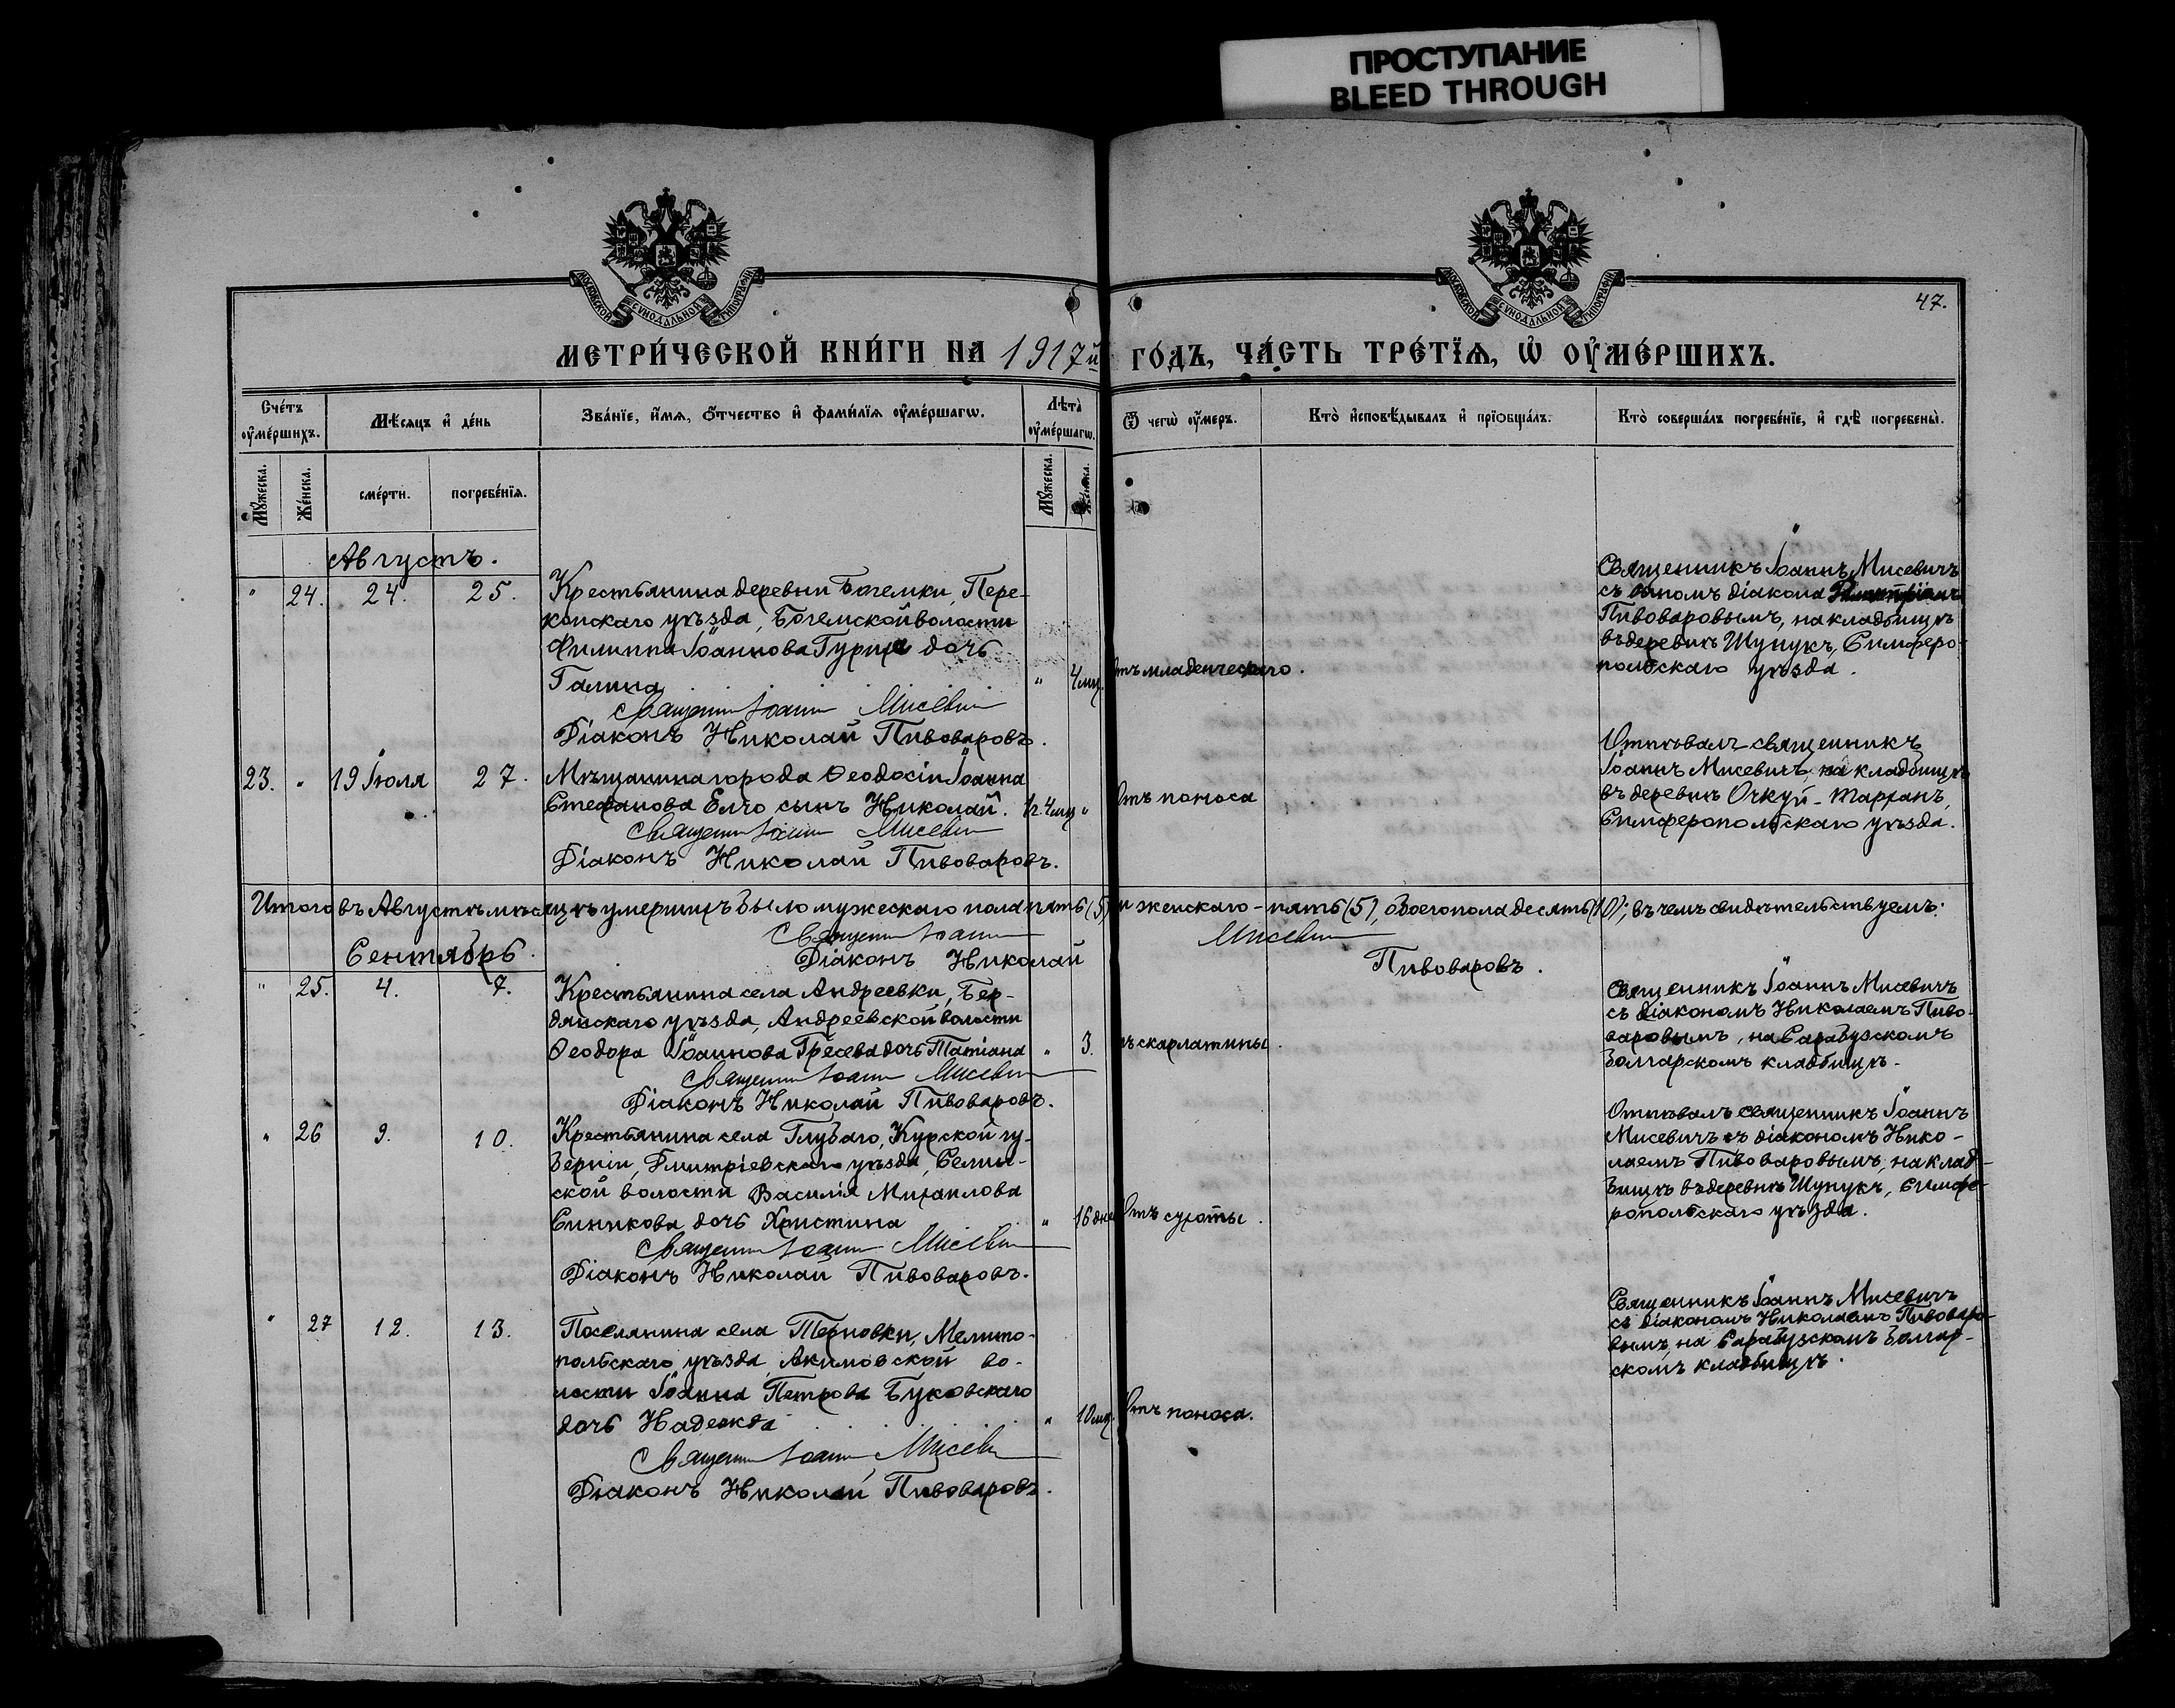 ПРОСТУПАНИЕ
BLEED THROUGH
МОСКОВСКОЙ СѴНОДАЛЬНОЙ ТИПОГРАФІИ
МОСКОВСКОЙ СѴНОДАЛЬНОЙ ТИПОГРАФІИ
47.
МЕТРИ́ЧЕСКОЙ КНИ́ГИ НА 1917й ГО́ДЪ, ЧА́СТЬ ТРЕ́ТІЯ, Ѡ҆ ОУ҆МЕ́РШИХЪ.
Сче́тъ оу҆ме́ршихъ.
Мѣ́сяцъ и҆ де́нь
Зва́нїе, и҆́мя, ѻ҆́тчество и҆ фами́лїя оу҆ме́ршагѡ.
Лѣта̀ оу҆ме́ршагѡ.
Ѿ чегѡ̀ оу҆́меръ.
Кто̀ и҆сповѣ́дывалъ и҆ прїѡбща́лъ.
Кто̀ соверша́лъ погребе́нїе, и҆ гдѣ̀ погребены̀.
Му́жеска.
Же́нска.
сме́рти.
погребе́нїя.
Му́жеска.
Же́нска.
Августъ.
" 24. 24. 25.
Крестьянина деревни Богемки, Пере-
копскаго уѣзда, Богемской волости
Филиппа Іоаннова дочь
Галина
" 4 мц. Отъ младенческаго.
Священникъ Іоаннъ Мисевичъ
Діаконъ Николай Пивоваровъ.
Священникъ Іоаннъ Мисевичъ
съ діакона
Пивоваровымъ, на кладбищѣ
въ деревнѣ Шунукъ, Симферо-
польскаго уѣзда.
23. " 19 Іюля 27.
Мѣщанина города Ѳеодосіи Іоанна
Стефанова Елчо сынъ Николай. 1 г. 4 мц " Отъ поноса
Священникъ Іоаннъ Мисевичъ
Діаконъ Николай Пивоваровъ.
Отпѣвалъ священникъ
Іоаннъ Мисевичъ, на кладбищѣ
въ деревнѣ Очкуй-Тарханъ,
Симферопольскаго уѣзда.
Итого въ Августѣ мѣсяцѣ умершихъ было мужескаго пола пять (5) и женскаго - пять (5), обоего пола десять (10); въ чемъ свидѣтельствуемъ:
Священникъ Іоаннъ Мисевичъ
Діаконъ Николай Пивоваровъ.
Сентябрь.
" 25. 4. 7.
Крестьянина села Андреевки, Бер-
дянскаго уѣзда, Андреевской волости
Ѳеодора Іоаннова Гресева дочь Татіана " 3. Отъ скарлатины.
Священникъ Іоаннъ Мисевичъ
Діаконъ Николай Пивоваровъ.
Священникъ Іоаннъ Мисевичъ
съ діакономъ Николаемъ Пиво-
варовымъ, на Сарабузскомъ
Болгарскомъ кладбищѣ.
" 26 9. 10.
Крестьянина села Глубаго, Курской гу-
берніи, Дмитріевскаго уѣзда, Селин-
ской волости Василія Михаилова
Синикова дочь Христина " 16 дней Отъ сухоты.
Священникъ Іоаннъ Мисевичъ
Діаконъ Николай Пивоваровъ.
Отпѣвалъ священникъ Іоаннъ
Мисевичъ съ діакономъ Нико-
лаемъ Пивоваровымъ, на клад-
бищѣ въ деревнѣ Шунукъ, Симфе-
ропольскаго уѣзда.
" 27 12. 13.
Поселянина села Терновки, Мелито-
польскаго уѣзда, Акимовской во-
лости Іоанна Петрова Буковскаго
дочь Надежда " 10 мц. Отъ поноса.
Священникъ Іоаннъ Мисевичъ
Діаконъ Николай Пивоваровъ.
Священникъ Іоаннъ Мисевичъ
съ діакономъ Николаемъ Пивоваро-
вымъ, на Сарабузскомъ Болгар-
скомъ кладбищѣ.